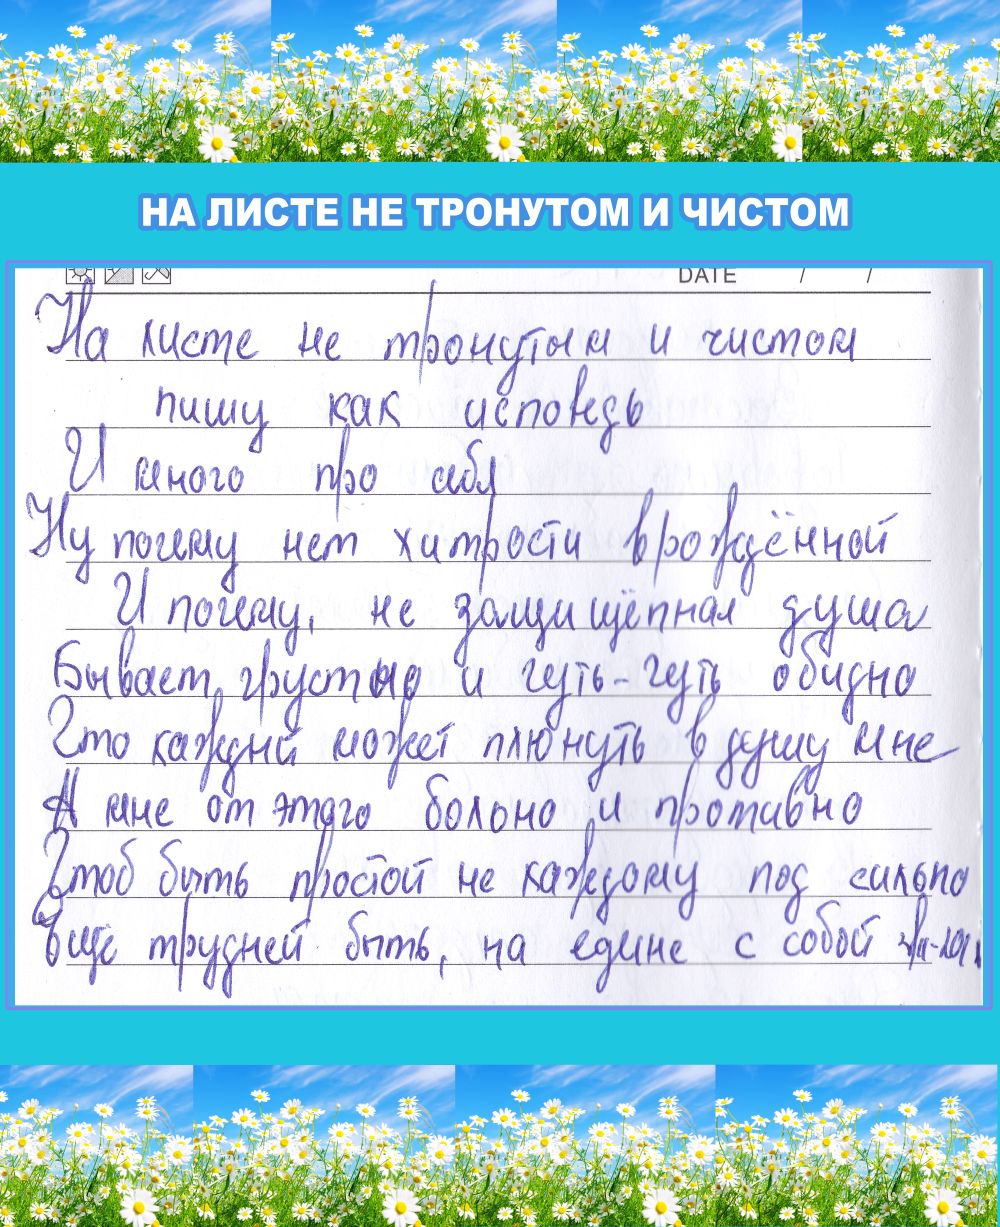 НА ЛИСТЕ НЕ ТРОНУТОМ И ЧИСТОМ
DATE / /
На листе не тронутым и чистом
пишу как исповедь
И много про себя
Ну почему нет хитрости врождённой
И почему, не защищённая душа
Бывает, грустно и чуть-чуть обидно
Что каждый может плюнуть в душу мне
А мне от этого больно и противно
Чтоб быть простой не каждому под сильно
Ещё трудней быть, на едине с собой